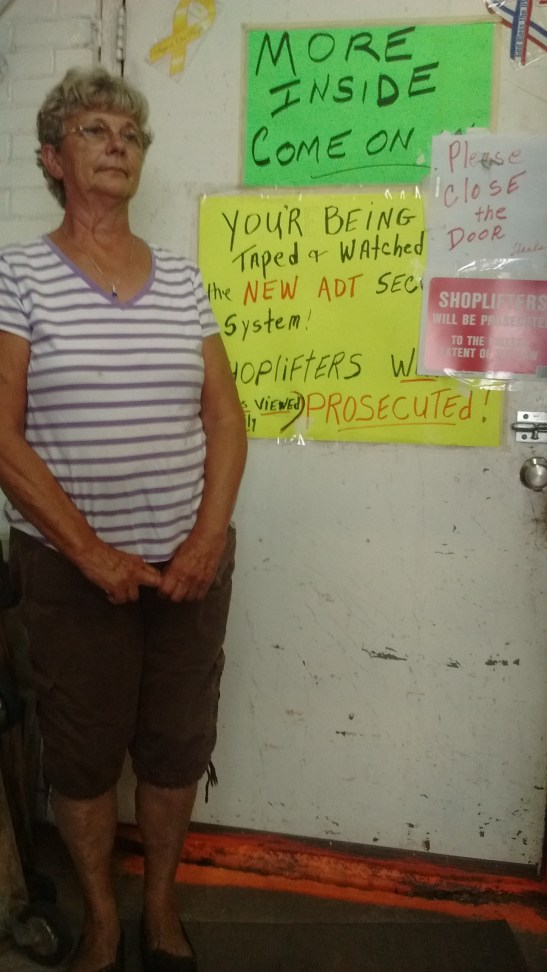 MORE
INSIDE
COME ON
YOU'R BEING
TAPed & WAtched
the NEW ADT SEC
System!
HOPLIFTERS W
VIEWEd) PROSECUTEd!
Please
CLOSE
the
DOOR
SHOPLIFTERS
WILL BE PROSECUTED
TO THE
EXTENT OF